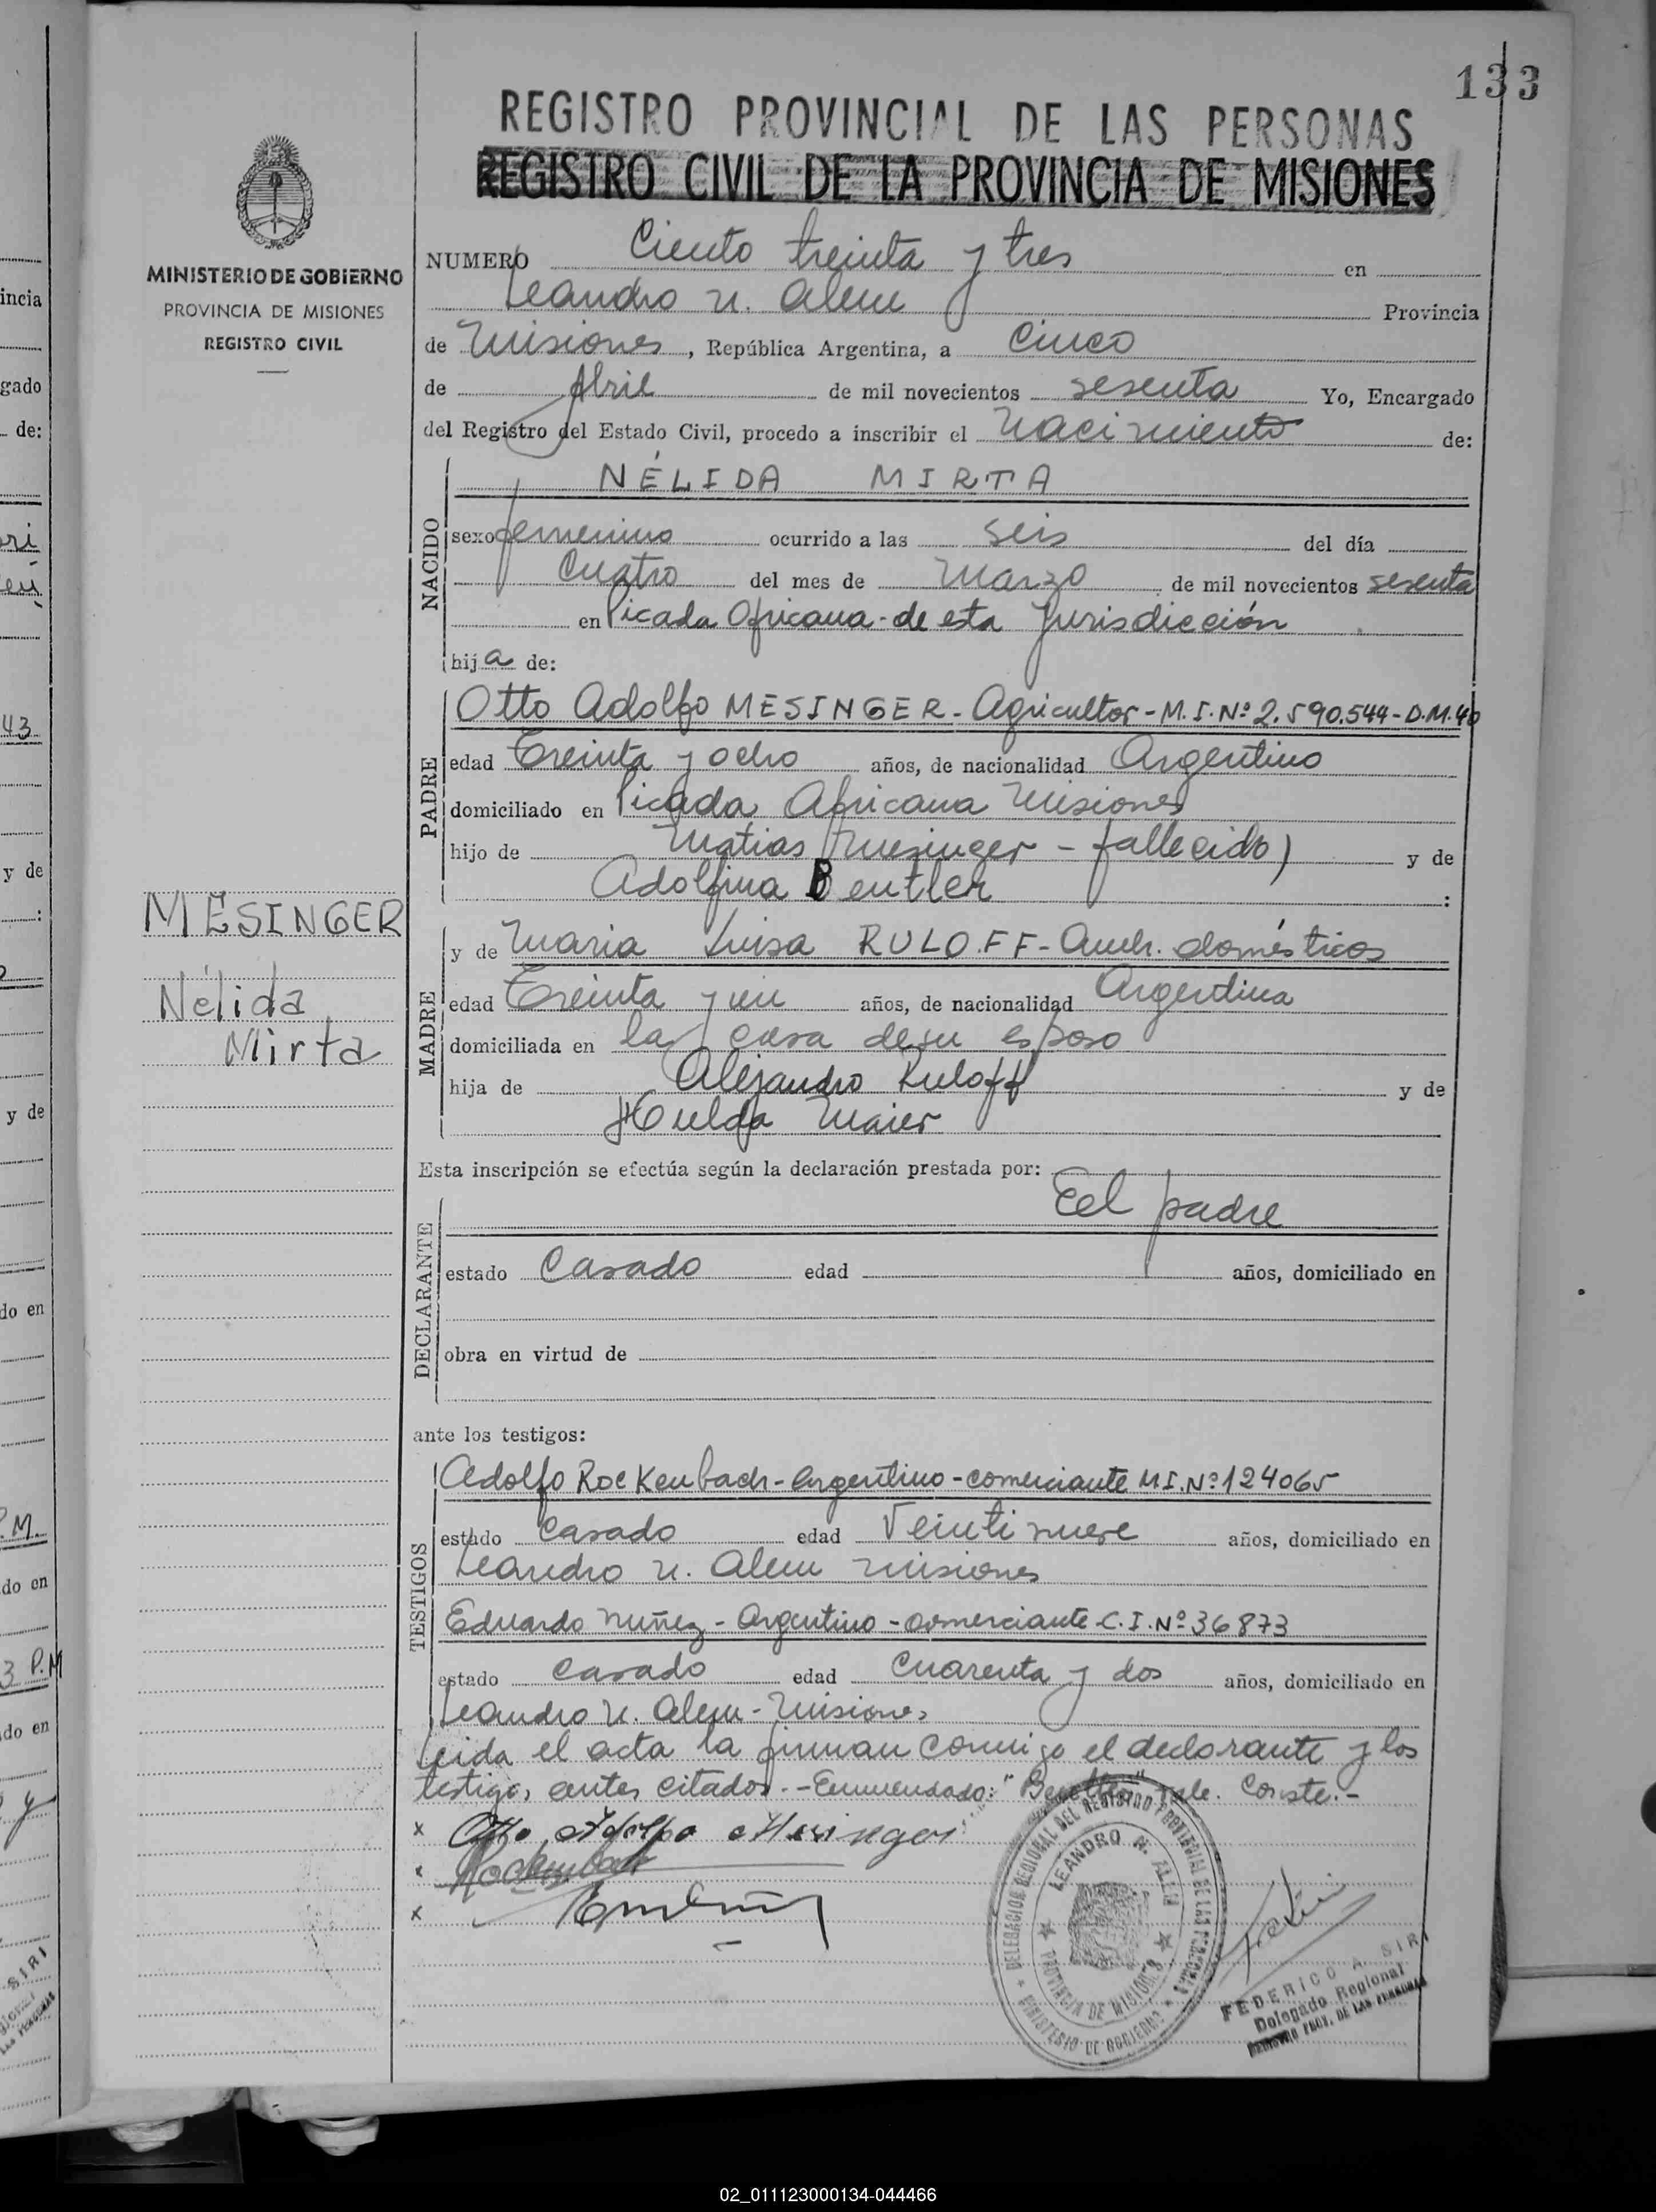 133
REGISTRO PROVINCIAL DE LAS PERSONAS
REGISTRO CIVIL DE LA PROVINCIA DE MISIONES
MINISTERIO DE GOBIERNO
PROVINCIA DE MISIONES
REGISTRO CIVIL
NUMERO Ciento treinta y tres en
Leandro N. Alem Provincia
de Misiones, República Argentina, a Cinco
de Abril de mil novecientos sesenta Yo, Encargado
del Registro del Estado Civil, procedo a inscribir el Nacimiento de:
NACIDO
NÉLIDA MIRTA
sexo femenino ocurrido a las seis del día
Cuatro del mes de Marzo de mil novecientos sesenta
en Picada Africana - de esta Jurisdicción
hija de:
PADRE
Otto Adolfo MESINGER - Agricultor - M.I. Nº 2.590.544 - D.M. 40
edad Treinta y ocho años, de nacionalidad Argentino
domiciliado en Picada Africana Misiones
hijo de Matias Mesinger - fallecido) y de
Adolfina Beutler :
MESINGER
Nélida
Mirta
MADRE
y de Maria Luisa RULOFF - Queh. domésticos
edad Treinta y un años, de nacionalidad Argentina
domiciliada en la casa de su esposo
hija de Alejandro Ruloff y de
Hulda Maier
Esta inscripción se efectúa según la declaración prestada por:
DECLARANTE
Eel padre
estado Casado edad años, domiciliado en
obra en virtud de
ante los testigos:
TESTIGOS
Adolfo Rockenbach - Argentino - comerciante M.I. Nº 124065
estado Casado edad Veintinueve años, domiciliado en
Leandro N. Alem Misiones
Eduardo Nuñez - Argentino - comerciante C.I. Nº 36873
estado casado edad Cuarenta y dos años, domiciliado en
Leandro N. Alem - Misiones
Leida el acta la firman conmigo el declarante y los
testigos antes citados. - Enmendado: "Beutler" Vale. Conste. -
x Otto Adolfo Mesinger
x Rockenbach
x
DELEGACION REGIONAL DEL REGISTRO PROVINCIAL DE LAS PERSONAS
LEANDRO N. ALEM
PROVINCIA DE MISIONES
MINISTERIO DE GOBIERNO
FEDERICO A. SIRI
Delegado Regional
REGISTRO PROV. DE LAS PERSONAS
02_011123000134-044466